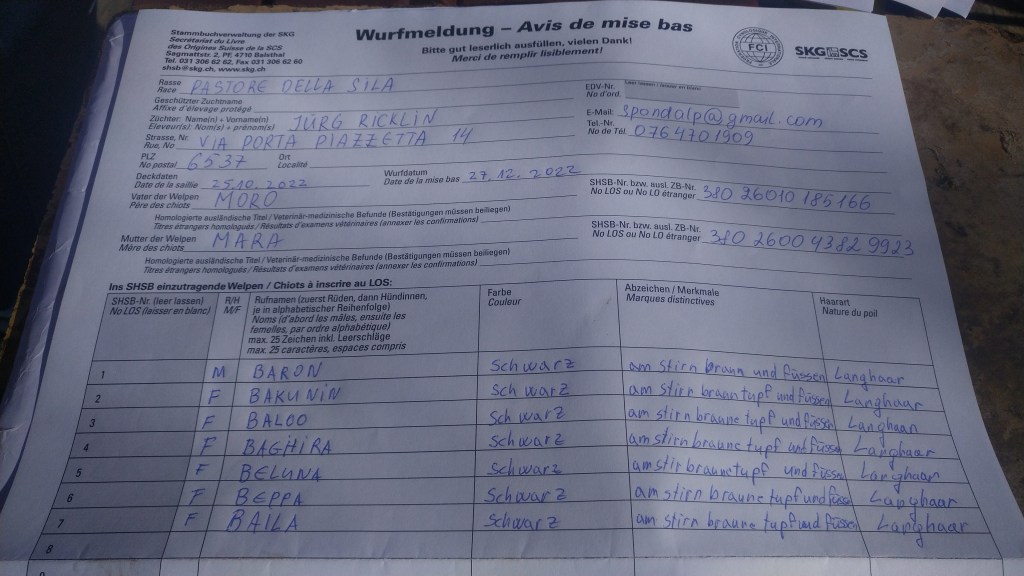 Stammbuchverwaltung der SKG
Secrétariat du Livre
des Origines Suisse de la SCS
Sagmattstr. 2, PF, 4710 Balsthal
Tel. 031 306 62 62, Fax 031 306 62 60
shsb@skg.ch, www.skg.ch
Wurfmeldung – Avis de mise bas
Bitte gut leserlich ausfüllen, vielen Dank!
Merci de remplir lisiblement!
FCI
SKG SCS
Rasse
Race PASTORE DELLA SILA
EDV-Nr.
No d'ord.
Geschützter Zuchtname
Affixe d'élevage protégé
E-Mail: spondalp@gmail.com
Züchter: Name(n) + Vorname(n)
Eleveur(s): Nom(s) + prénom(s) JÜRG RICKLIN
Tel.-Nr.
No de Tél. 076 470 1909
Strasse, Nr.
Rue, No VIA PORTA PIAZZETTA 14
PLZ Ort
No postal 6537 Localité
Deckdaten Wurfdatum
Date de la saillie 25.10.2022 Date de la mise bas 27.12.2022
Vater der Welpen SHSB-Nr. bzw. ausl. ZB-Nr.
Père des chiots MORO No LOS ou No LO étranger 380 26010 185166
Homologierte ausländische Titel / Veterinär-medizinische Befunde (Bestätigungen müssen beiliegen)
Titres étrangers homologués / Résultats d'examens vétérinaires (annexer les confirmations)
Mutter der Welpen SHSB-Nr. bzw. ausl. ZB-Nr.
Mère des chiots MARA No LOS ou No LO étranger 380 2600 4382 9923
Homologierte ausländische Titel / Veterinär-medizinische Befunde (Bestätigungen müssen beiliegen)
Titres étrangers homologués / Résultats d'examens vétérinaires (annexer les confirmations)
Ins SHSB einzutragende Welpen / Chiots à inscrire au LOS:
SHSB-Nr. (leer lassen)
No LOS (laisser en blanc)
R/H
M/F
Rufnamen (zuerst Rüden, dann Hündinnen,
je in alphabetischer Reihenfolge)
Noms (d'abord les mâles, ensuite les
femelles, par ordre alphabétique)
max. 25 Zeichen inkl. Leerschläge
max. 25 caractères, espaces compris
Farbe
Couleur
Abzeichen / Merkmale
Marques distinctives
Haarart
Nature du poil
1 M BARON Schwarz am stirn braun und füssen Langhaar
2 F BAKUNIN Schwarz am stirn braun tupf und füssen Langhaar
3 F BALOO Schwarz am stirn braune tupf und füssen Langhaar
4 F BAGHIRA Schwarz am stirn braune tupf und füssen Langhaar
5 F BELUNA Schwarz am stirn braune tupf und füssen Langhaar
6 F BEPPA Schwarz am stirn braune tupf und füssen Langhaar
7 F BAILA Schwarz am stirn braune tupf und füssen Langhaar
8